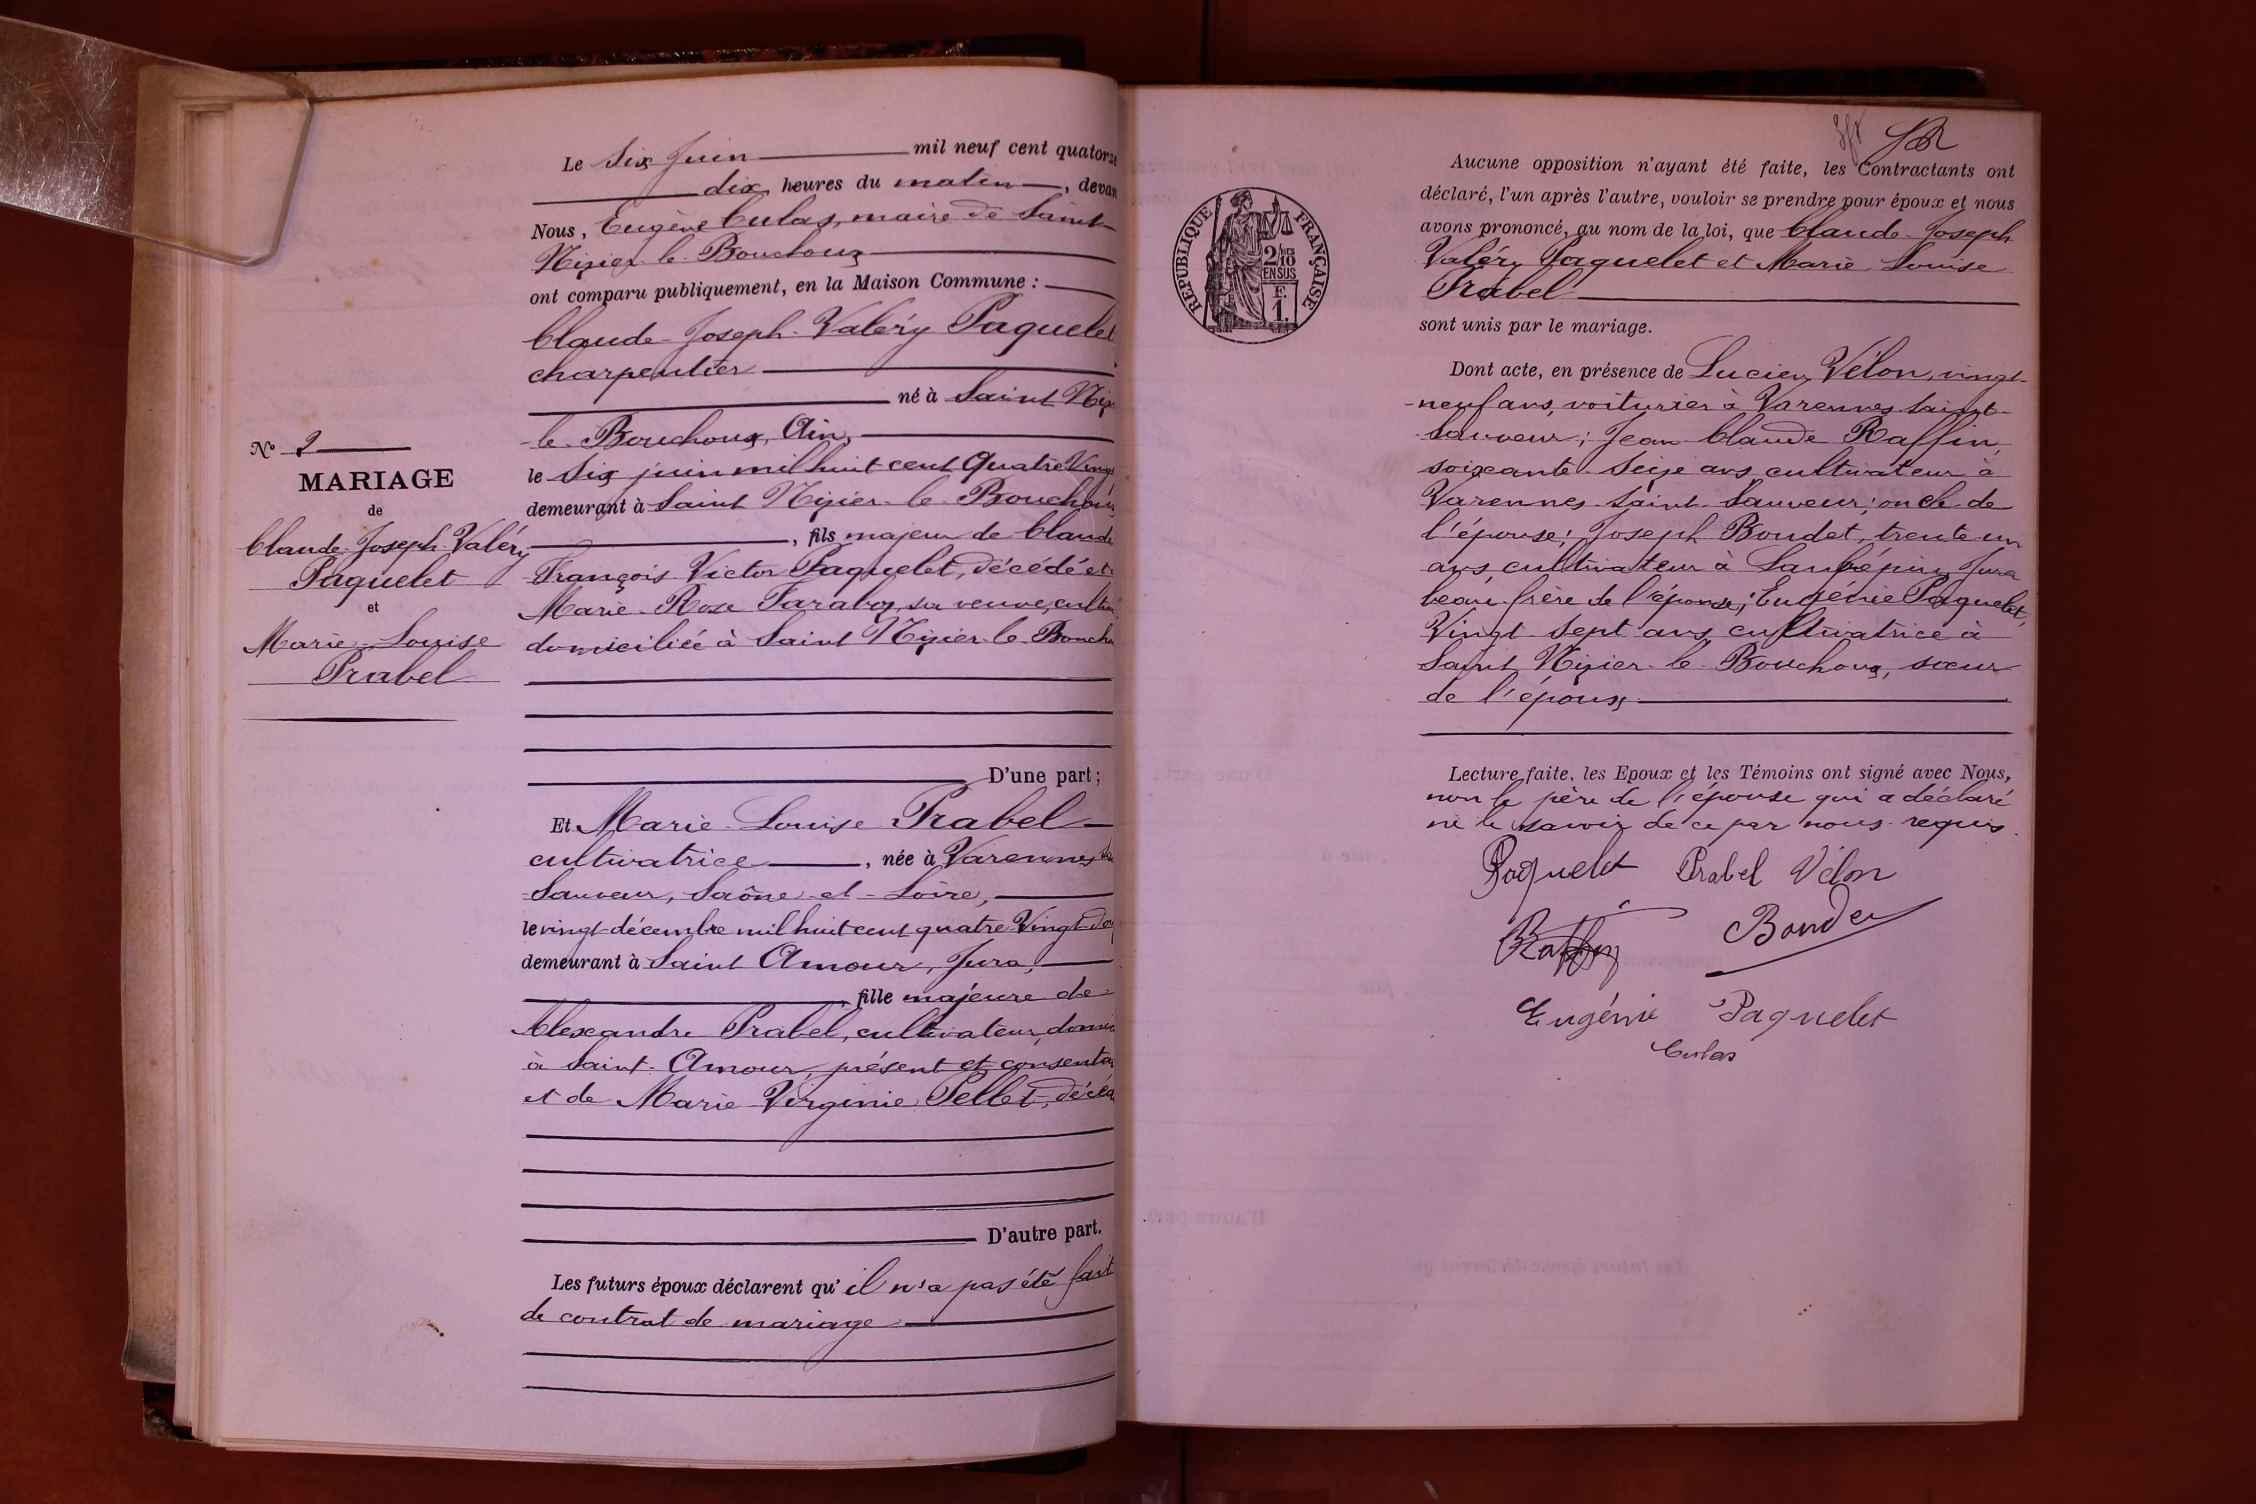 N° 9
MARIAGE
de
Claude Joseph Valéry
Paquelet
et
Marie Louise
Prabel
Le Six Juin mil neuf cent quatorze
dix heures du matin, devan
Nous, Eugène Culas, maire de Saint-
Nizier le Bouchoux
ont comparu publiquement, en la Maison Commune :
Claude Joseph Valéry Paquelet
charpentier
né à Saint Nizi
le Bouchoux, Ain,
le Six juin mil huit cent Quatre Vingt
demeurant à Saint Nizier le Bouchoux
, fils majeur de Claude
François Victor Paquelet, décédé et
Marie Rose sa veuve, cultiv
domiciliée à Saint Nizier le Boucho
D'une part ;
Et Marie Louise Prabel
cultivatrice, née à Varennes
Sauveur, Saône et Loire,
le vingt décembre mil huit cent quatre Vingt
demeurant à Saint Amour, Jura,
, fille majeure de
Alexandre Prabel, cultivateur, domi
à Saint Amour, présent et consenta
et de Marie Virginie Pellet, décéd
D'autre part.
Les futurs époux déclarent qu'il n'a pas été fait
de contrat de mariage
RÉPUBLIQUE FRANÇAISE
2/10
EN SUS
F.
1.
Aucune opposition n'ayant été faite, les Contractants ont
déclaré, l'un après l'autre, vouloir se prendre pour époux et nous
avons prononcé, au nom de la loi, que Claude Joseph
Valéry Paquelet et Marie Louise
Prabel
sont unis par le mariage.
Dont acte, en présence de Lucien Vélon, vingt-
-neuf ans, voiturier à Varennes Saint-
Sauveur ; Jean Claude Raffin,
soixante Seize ans cultivateur à
Varennes Saint Sauveur ; oncle de
l'épouse ; Joseph Boudet, trente un
ans, cultivateur à Jura
beau frère de l'épouse ; Eugénie Paquelet,
Vingt Sept ans cultivatrice à
Saint Nizier le Bouchoux, sœur
de l'époux
Lecture faite, les Epoux et les Témoins ont signé avec Nous,
non le père de l'épouse qui a déclaré
ne le savoir de ce par nous requis.
Paquelet Prabel Vélon
Raffin Boudet
Eugénie Paquelet
Culas